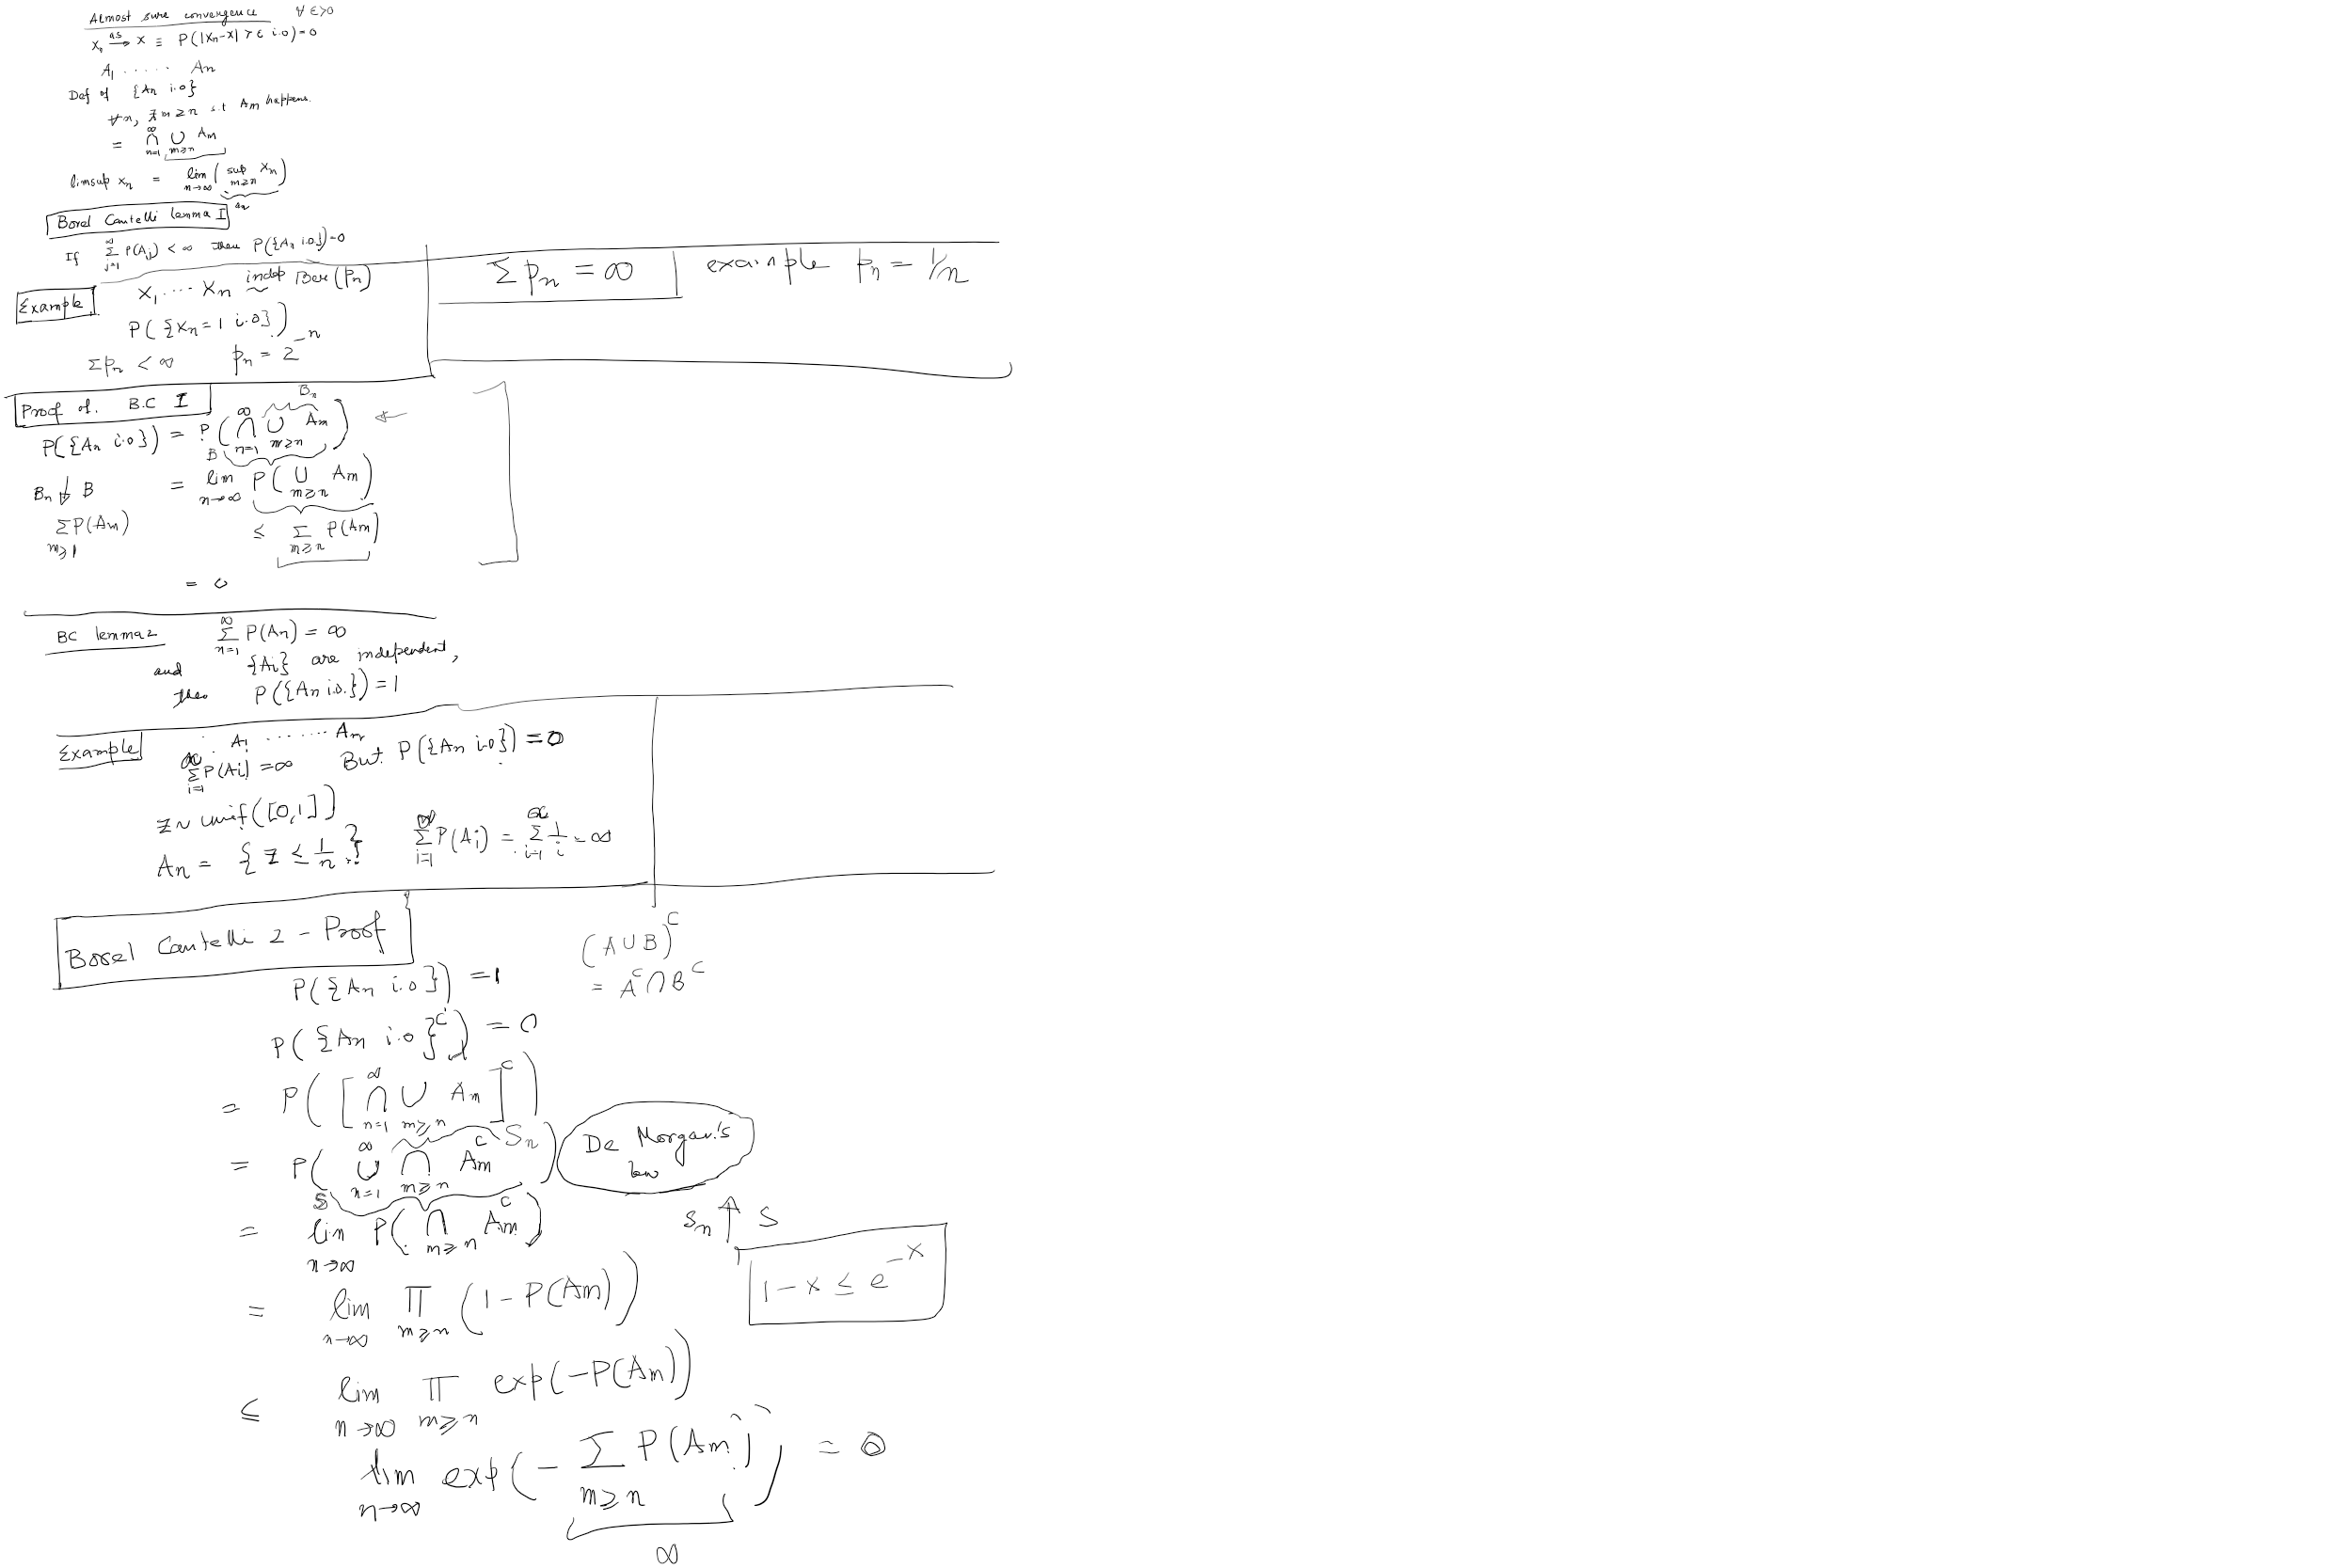 Almost sure convergence ∀ ε>0
Xₙ →a.s X ≡ P(|Xₙ-X| > ε i.o) = 0
A₁ ..... Aₙ
Def of {Aₙ i.o}
∀n, ∃ m ≥ n s.t Aₘ happens.
= ∩_{n=1}^∞ ∪_{m≥n} Aₘ
limsup xₙ = lim_{n→∞} ( sup_{m≥n} xₙ )
aₙ
Borel Cantelli lemma I
If Σ_{j=1}^∞ P(Aⱼ) < ∞ then P({Aₙ i.o}) = 0
Example X₁ .... Xₙ indep ~ Ber(pₙ)
P({Xₙ = 1 i.o})
Σpₙ < ∞ pₙ = 2^{-n}
Σ pₙ = ∞ example pₙ = 1/n
Proof of. B.C I
P({Aₙ i.o}) = P( ∩_{n=1}^∞ ∪_{m≥n} Aₘ ) Bₙ ←
B
Bₙ ↓ B = lim_{n→∞} P( ∪_{m≥n} Aₘ )
Σ_{m≥1} P(Aₘ) ≤ Σ_{m≥n} P(Aₘ)
= 0
BC lemma 2 Σ_{n=1}^∞ P(Aₙ) = ∞
and {Aᵢ} are independent,
then P({Aₙ i.o.}) = 1
Example A₁ ....... Aₙ
Σ_{i=1}^∞ P(Aᵢ) = ∞ But P({Aₙ i.o}) = 0
Z ~ unif([0,1])
Aₙ = {Z ≤ 1/n} Σ_{i=1}^∞ P(Aᵢ) = Σ_{i=1}^∞ 1/i = ∞
Borel Cantelli 2 - Proof
(A∪B)^C
= A^C ∩ B^C
P({Aₙ i.o}) = 1
P({Aₙ i.o}^C) = 0
= P( [ ∩_{n=1}^∞ ∪_{m≥n} Aₘ ]^C )
= P( ∪_{n=1}^∞ ∩_{m≥n} Aₘ^C ) Sₙ
De Morgan's
law
S
= lim_{n→∞} P( ∩_{m≥n} Aₘ^C )
Sₙ ↑ S
1 - x ≤ e^{-x}
= lim_{n→∞} Π_{m≥n} (1 - P(Aₘ))
≤ lim_{n→∞} Π_{m≥n} exp(-P(Aₘ))
lim_{n→∞} exp(- Σ_{m≥n} P(Aₘ)) = 0
∞